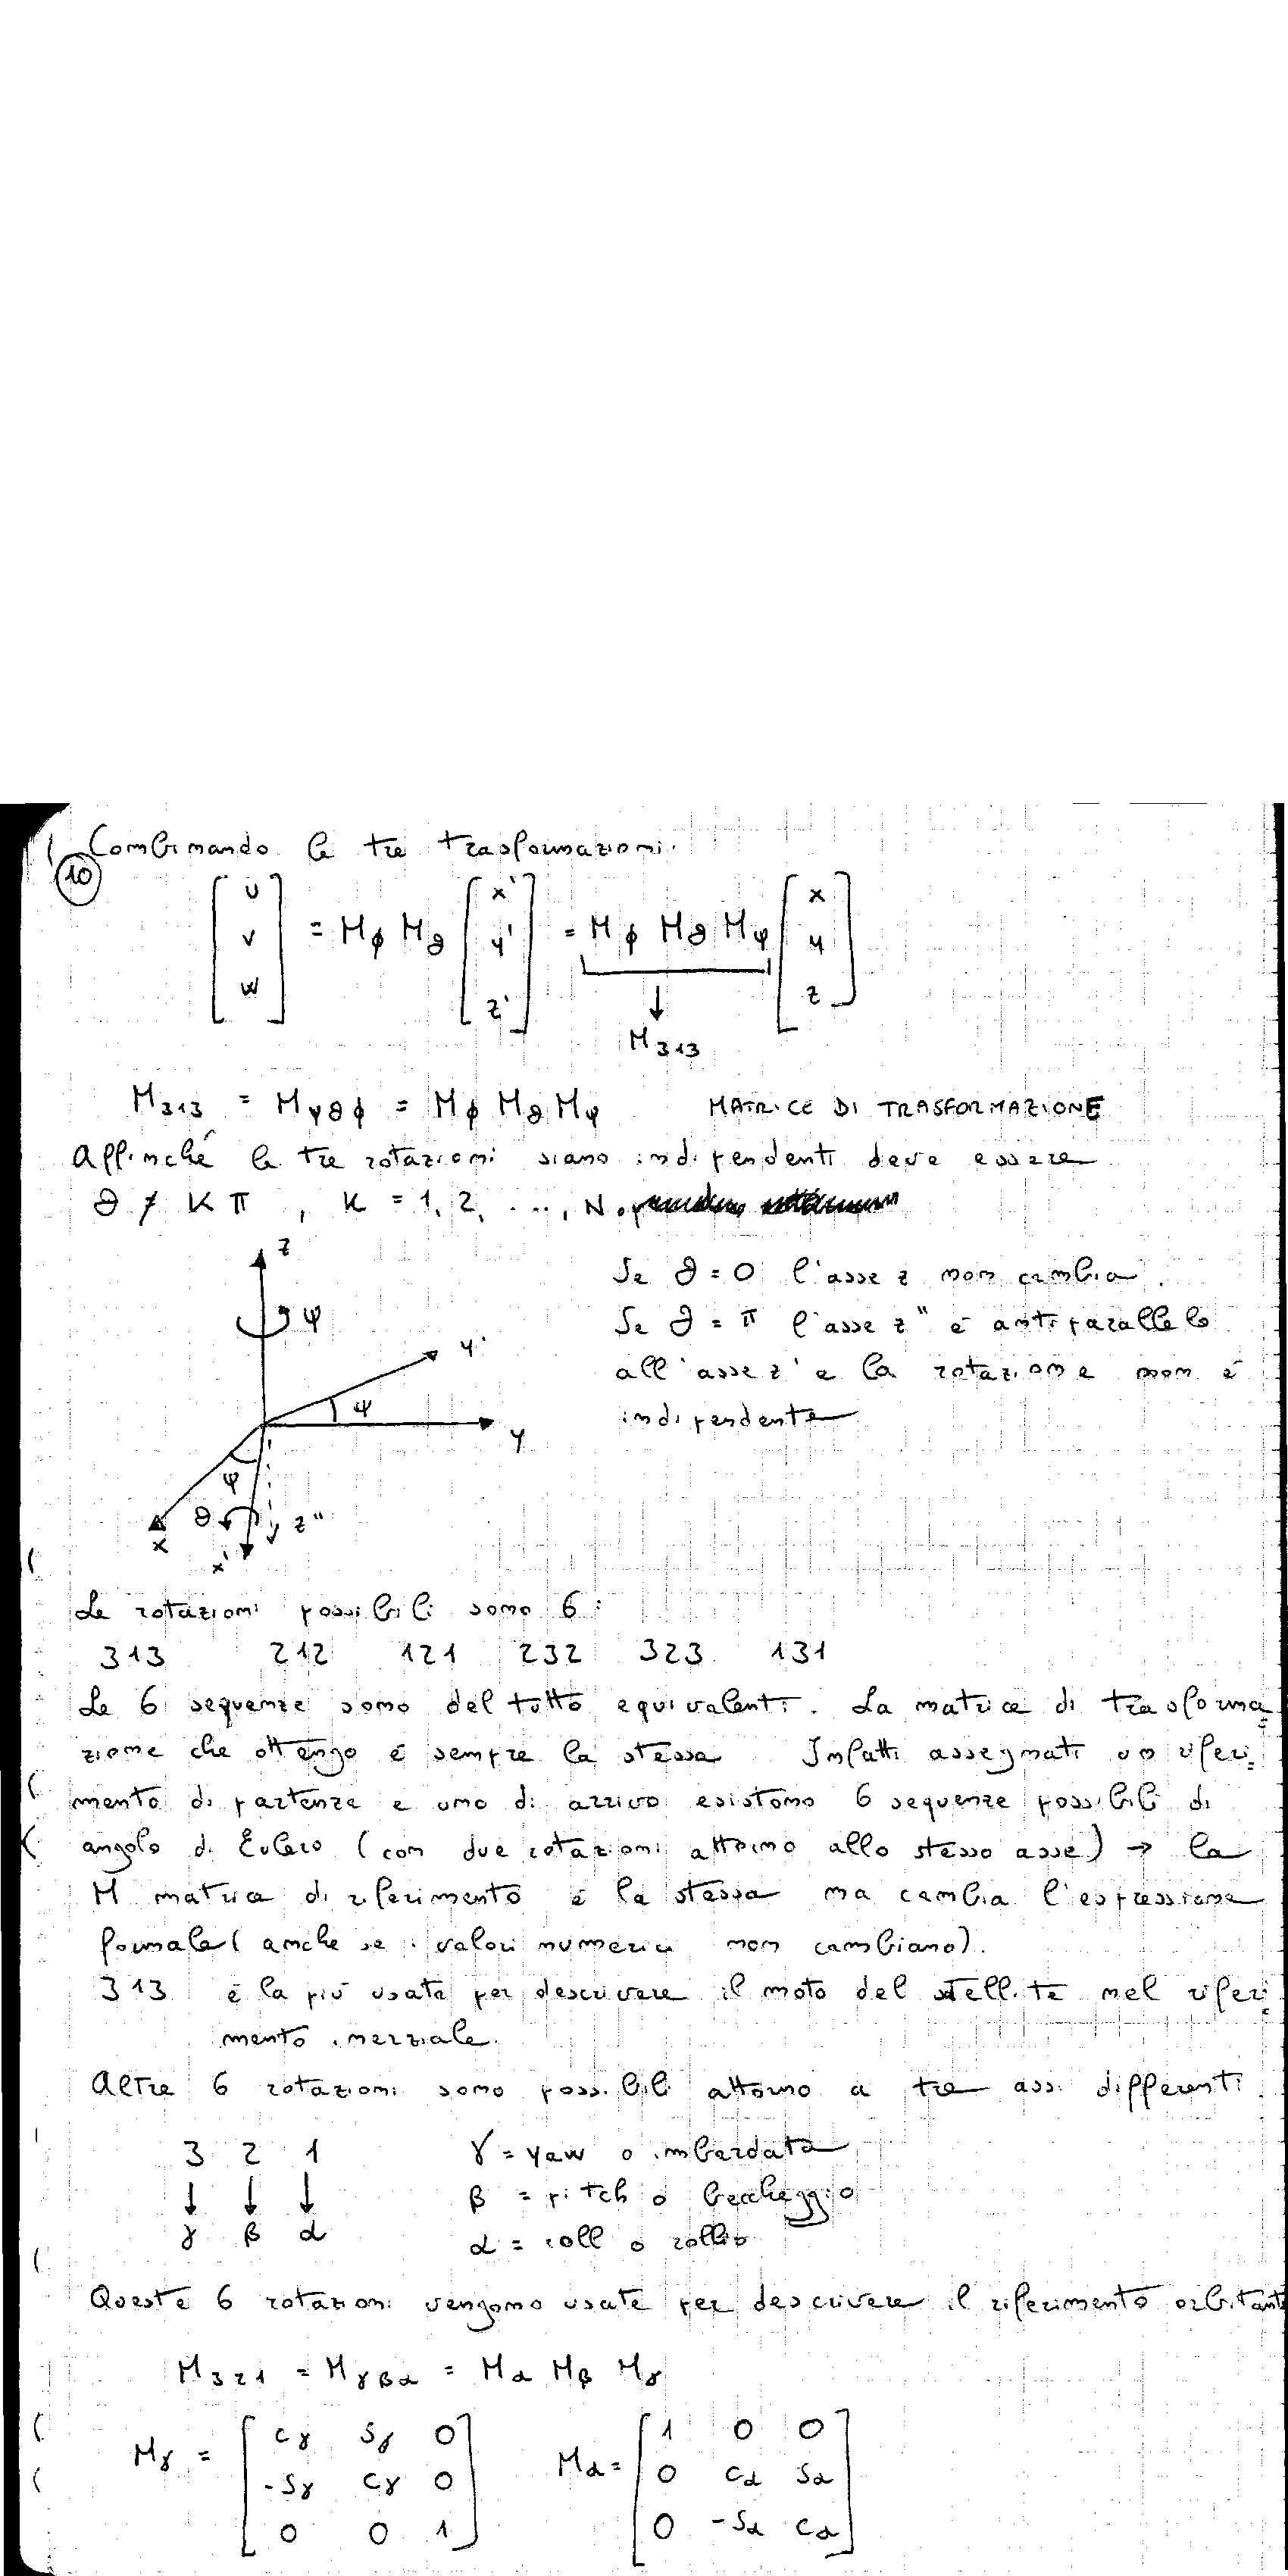 Combinando le tre trasformazioni:
10
[u v w] = Mϕ Mϑ [x' y' z'] = Mϕ Mϑ Mψ [x y z]
↓
M313
M313 = Mψϑϕ = Mϕ Mϑ Mψ MATRICE DI TRASFORMAZIONE
Affinché le tre rotazioni siano indipendenti deve essere
ϑ ≠ K π , K = 1, 2, ..., N.
z
ψ
y'
ψ
y
ψ
ϑ z"
x
x'
Se ϑ = 0 l'asse z non cambia.
Se ϑ = π l'asse z" è antiparallelo
all'asse z' e la rotazione non è
indipendente
Le rotazioni possibili sono 6:
313 212 121 232 323 131
Le 6 sequenze sono del tutto equivalenti. La matrice di trasforma=
zione che ottengo è sempre la stessa Infatti assegnati un riferi=
mento di partenza e uno di arrivo esistono 6 sequenze possibili di
angolo di Eulero (con due rotazioni attorno allo stesso asse) → la
M matrice di riferimento è la stessa ma cambia l'espressione
formale (anche se i valori numerici non cambiano).
313 è la più usata per descrivere il moto del stellite nel riferi=
mento inerziale.
Altre 6 rotazioni sono possibili attorno a tre assi differenti
3 2 1 γ = yaw o imbardata
↓ ↓ ↓ β = pitch o beccheggio
γ β α α = roll o rollio
Queste 6 rotazioni vengono usate per descrivere il riferimento orbitante
M321 = Mγβα = Mα Mβ Mγ
Mγ = [cγ sγ 0 Mα = [1 0 0
-sγ cγ 0 0 cα sα
0 0 1] 0 -sα cα]